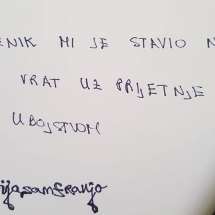 ENIK MI JE STAVIO N
VRAT UZ PRIJETNJE
UBOJSTVOM
ijasamfranjo